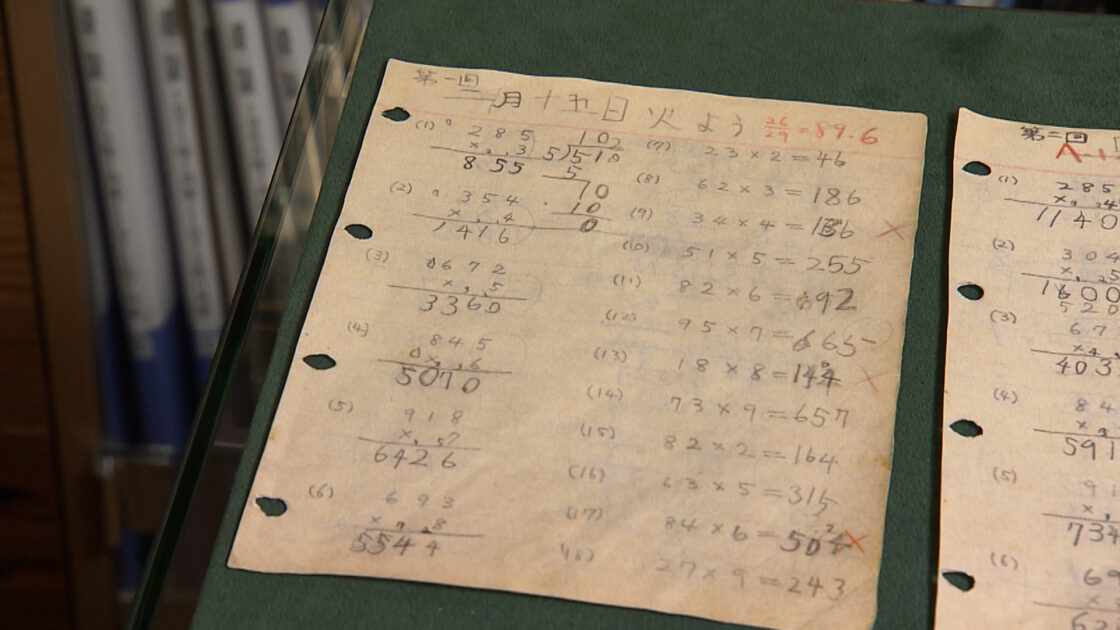 第一回
二月十五日 火 よう 26/29=89.6
(1) 285
× 3
855
102
5)510
5
10
10
0
(2) 354
× 4
1416
(3) 672
× 5
3360
(4) 845
× 6
5070
(5) 918
× 7
6426
(6) 693
× 8
5544
(7) 23×2=46
(8) 62×3=186
(9) 34×4=136 ×
(10) 51×5=255
(11) 82×6=492
(12) 95×7=665
(13) 18×8=144 ×
(14) 73×9=657
(15) 82×2=164
(16) 63×5=315
(17) 84×6=504 ×
27×9=243
第二回
(1) 285
1140
(2) 304
(3)
403
(4) 84
591
(5)
734
(6) 69